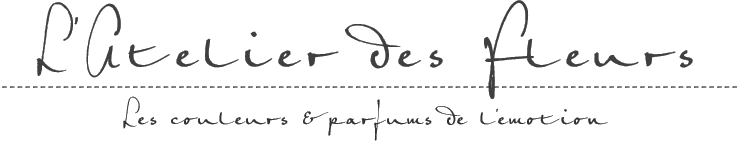 L'Atelier des Fleurs
Les couleurs & parfums de l'émotion